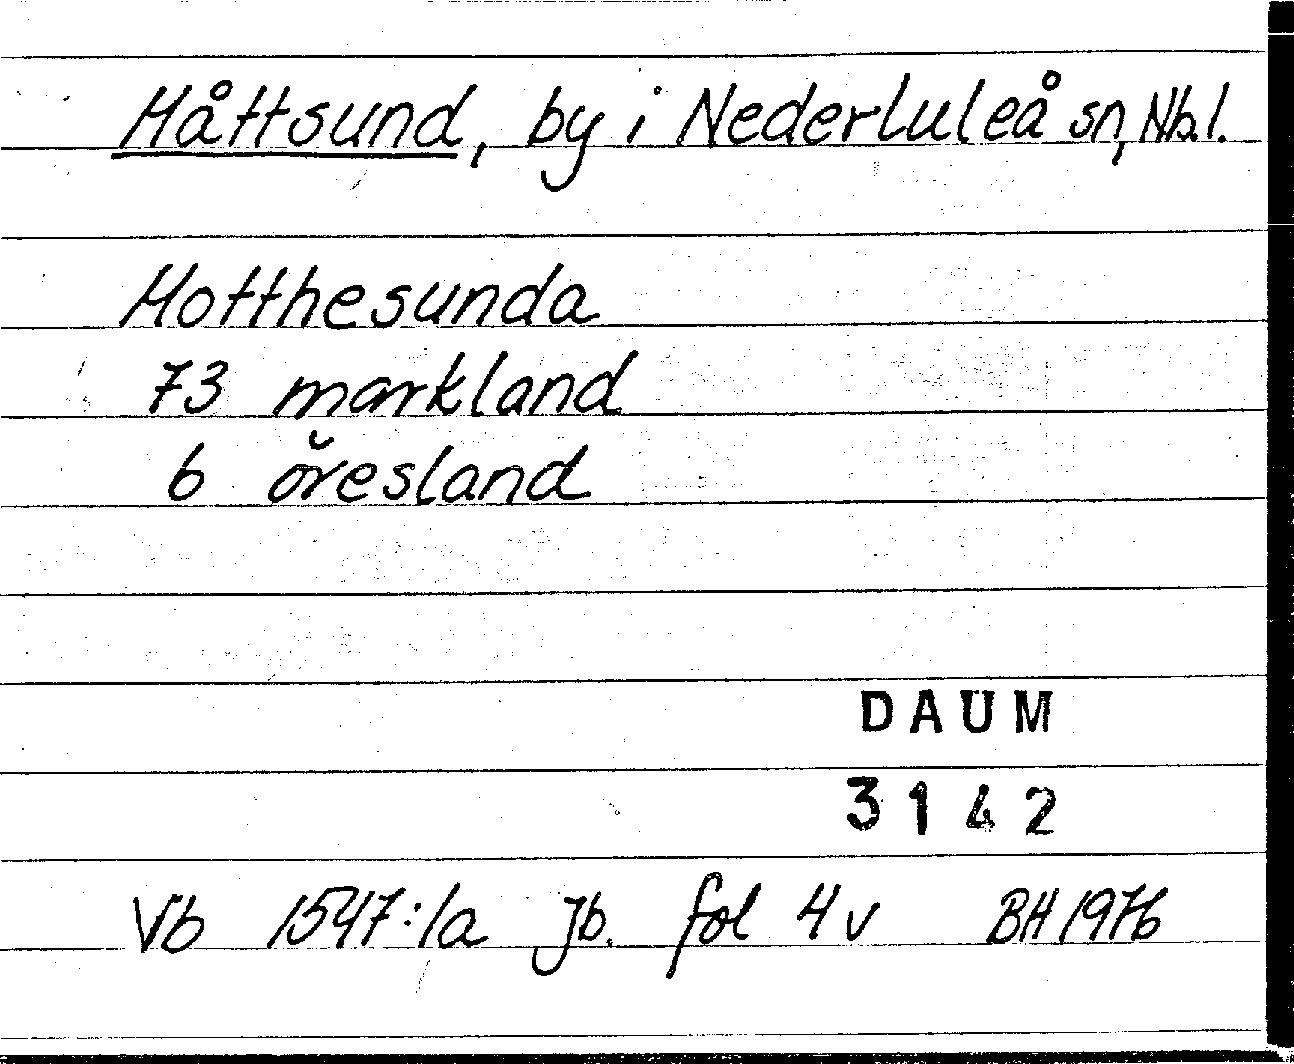 Måttsund, by i Nederluleå sn, Nb.l.
Motthesunda
73 markland
6 öresland
DAUM
3142
Vb 1547:1a Jb. fol 4 v BH 1976